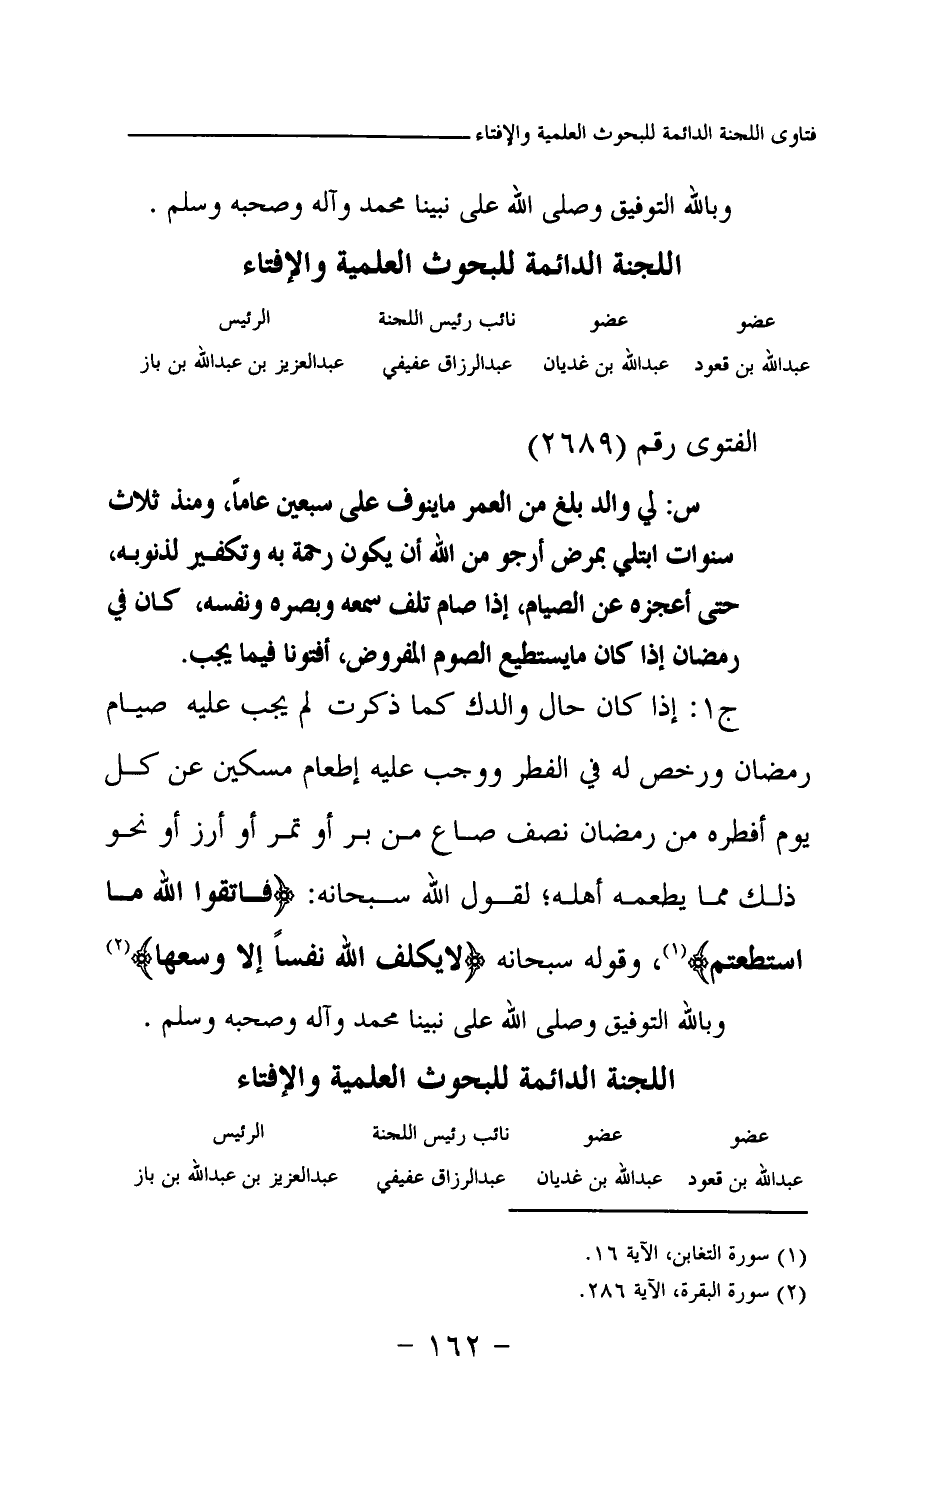 فتاوى اللجنة الدائمة للبحوث العلمية والإفتاء
وبالله التوفيق وصلى الله على نبينا محمد وآله وصحبه وسلم .
اللجنة الدائمة للبحوث العلمية والإفتاء
عضو عضو نائب رئيس اللجنة الرئيس
عبدالله بن قعود عبدالله بن غديان عبدالرزاق عفيفي عبدالعزيز بن عبدالله بن باز
الفتوى رقم (٢٦٨٩)
س: لي والد بلغ من العمر ماينوف على سبعين عاماً، ومنذ ثلاث
سنوات ابتلي بمرض أرجو من الله أن يكون رحمة به وتكفير لذنوبه،
حتى أعجزه عن الصيام، إذا صام تلف سمعه وبصره ونفسه، كان في
رمضان إذا كان مايستطيع الصوم المفروض، أفتونا فيما يجب.
ج١: إذا كان حال والدك كما ذكرت لم يجب عليه صيام
رمضان ورخص له في الفطر ووجب عليه إطعام مسكين عن كل
يوم أفطره من رمضان نصف صاع من بر أو تمر أو أرز أو نحو
ذلك مما يطعمه أهله؛ لقول الله سبحانه: ﴿فاتقوا الله ما
استطعتم﴾(١)، وقوله سبحانه ﴿لايكلف الله نفساً إلا وسعها﴾(٢)
وبالله التوفيق وصلى الله على نبينا محمد وآله وصحبه وسلم .
اللجنة الدائمة للبحوث العلمية والإفتاء
عضو عضو نائب رئيس اللجنة الرئيس
عبدالله بن قعود عبدالله بن غديان عبدالرزاق عفيفي عبدالعزيز بن عبدالله بن باز
(١) سورة التغابن، الآية ١٦.
(٢) سورة البقرة، الآية ٢٨٦.
- ١٦٢ -